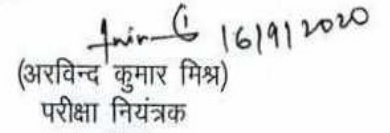 16/9/2020
(अरविन्द कुमार मिश्र)
परीक्षा नियंत्रक